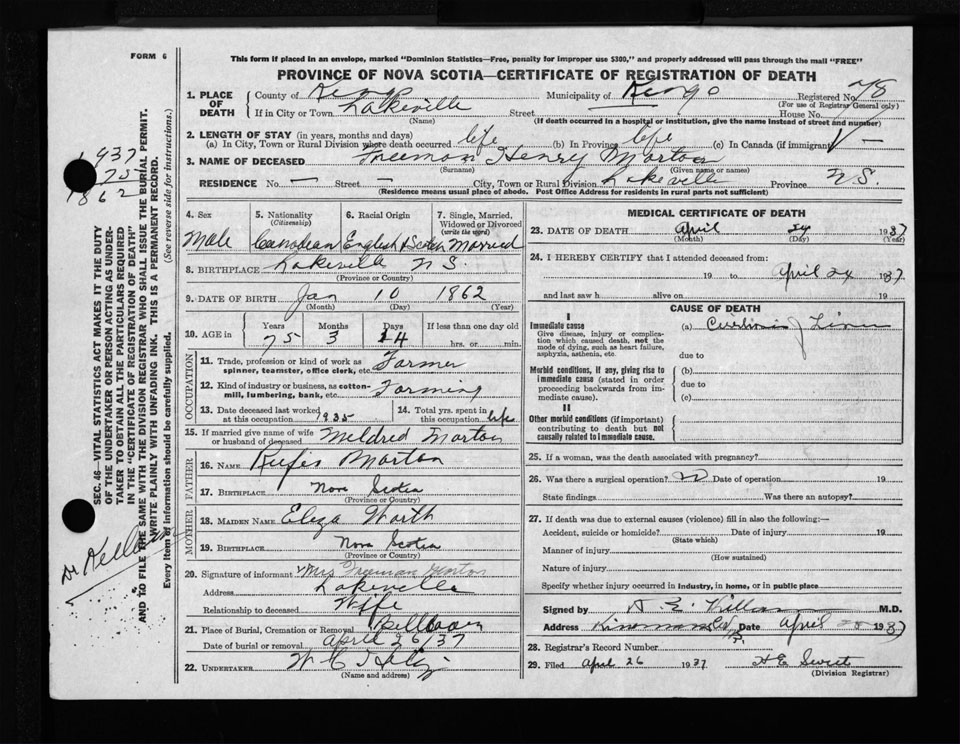 FORM 6
This form if placed in an envelope, marked "Dominion Statistics—Free, penalty for improper use $300," and properly addressed will pass through the mail "FREE"
PROVINCE OF NOVA SCOTIA—CERTIFICATE OF REGISTRATION OF DEATH
1. PLACE OF DEATH
County of Kings Municipality of Kings Registered No. 78
(For use of Registrar General only)
If in City or Town Lakeville Street House No.
(Name) (If death occurred in a hospital or institution, give the name instead of street and number)
2. LENGTH OF STAY (in years, months and days)
(a) In City, Town or Rural Division where death occurred life (b) In Province life (c) In Canada (if immigrant) —
3. NAME OF DECEASED Freeman Henry Morton
(Surname) (Given name or names)
RESIDENCE No. — Street — City, Town or Rural Division Lakeville Province N.S.
(Residence means usual place of abode. Post Office Address for residents in rural parts not sufficient)
4. Sex 5. Nationality (Citizenship) 6. Racial Origin 7. Single, Married, Widowed or Divorced (write the word)
Male Canadian English & Scotch Married
8. BIRTHPLACE Lakeville N S.
(Province or Country)
9. DATE OF BIRTH Jan 10 1862
(Month) (Day) (Year)
10. AGE in Years Months Days If less than one day old
75 3 14 hrs. or min.
OCCUPATION
11. Trade, profession or kind of work as spinner, teamster, office clerk, etc. Farmer
12. Kind of industry or business, as cotton-mill, lumbering, bank, etc. Farming
13. Date deceased last worked at this occupation 1935 14. Total yrs. spent in this occupation life
15. If married give name of wife or husband of deceased Mildred Morton
FATHER
16. NAME Rufis Morton
17. BIRTHPLACE Nova Scotia
(Province or Country)
MOTHER
18. MAIDEN NAME Eliza Worth
19. BIRTHPLACE Nova Scotia
(Province or Country)
20. Signature of informant Mrs Freeman Morton
Address Lakeville
Relationship to deceased Wife
21. Place of Burial, Cremation or Removal
Date of burial or removal April 26/37
22. UNDERTAKER W C
(Name and address)
MEDICAL CERTIFICATE OF DEATH
23. DATE OF DEATH April 24 1937
(Month) (Day) (Year)
24. I HEREBY CERTIFY that I attended deceased from:
19 to April 24 1937
and last saw h alive on 19
CAUSE OF DEATH
I
Immediate cause (a) of Liver
Give disease, injury or complication which caused death, not the mode of dying, such as heart failure, asphyxia, asthenia, etc.
due to
Morbid conditions, if any, giving rise to immediate cause (stated in order proceeding backwards from immediate cause).
(b)
due to
(c)
II
Other morbid conditions (if important) contributing to death but not causally related to immediate cause.
25. If a woman, was the death associated with pregnancy?
26. Was there a surgical operation? Date of operation 19
State findings Was there an autopsy?
27. If death was due to external causes (violence) fill in also the following:
Accident, suicide or homicide? Date of injury 19
(State which)
Manner of injury
(How sustained)
Nature of injury
Specify whether injury occurred in industry, in home, or in public place
Signed by M.D.
Address Date April 1937
28. Registrar's Record Number
29. Filed April 26 1937 H E
(Division Registrar)
SEC. 46—VITAL STATISTICS ACT MAKES IT THE DUTY
OF THE UNDERTAKER OR PERSON ACTING AS UNDER-
TAKER TO OBTAIN ALL THE PARTICULARS REQUIRED
IN THE "CERTIFICATE OF REGISTRATION OF DEATH"
AND TO FILE THE SAME WITH THE DIVISION REGISTRAR WHO SHALL ISSUE THE BURIAL PERMIT.
WRITE PLAINLY WITH UNFADING INK. THIS IS A PERMANENT RECORD.
Every item of information should be carefully supplied. (See reverse side for instructions.)
1937
75
1862
Dr